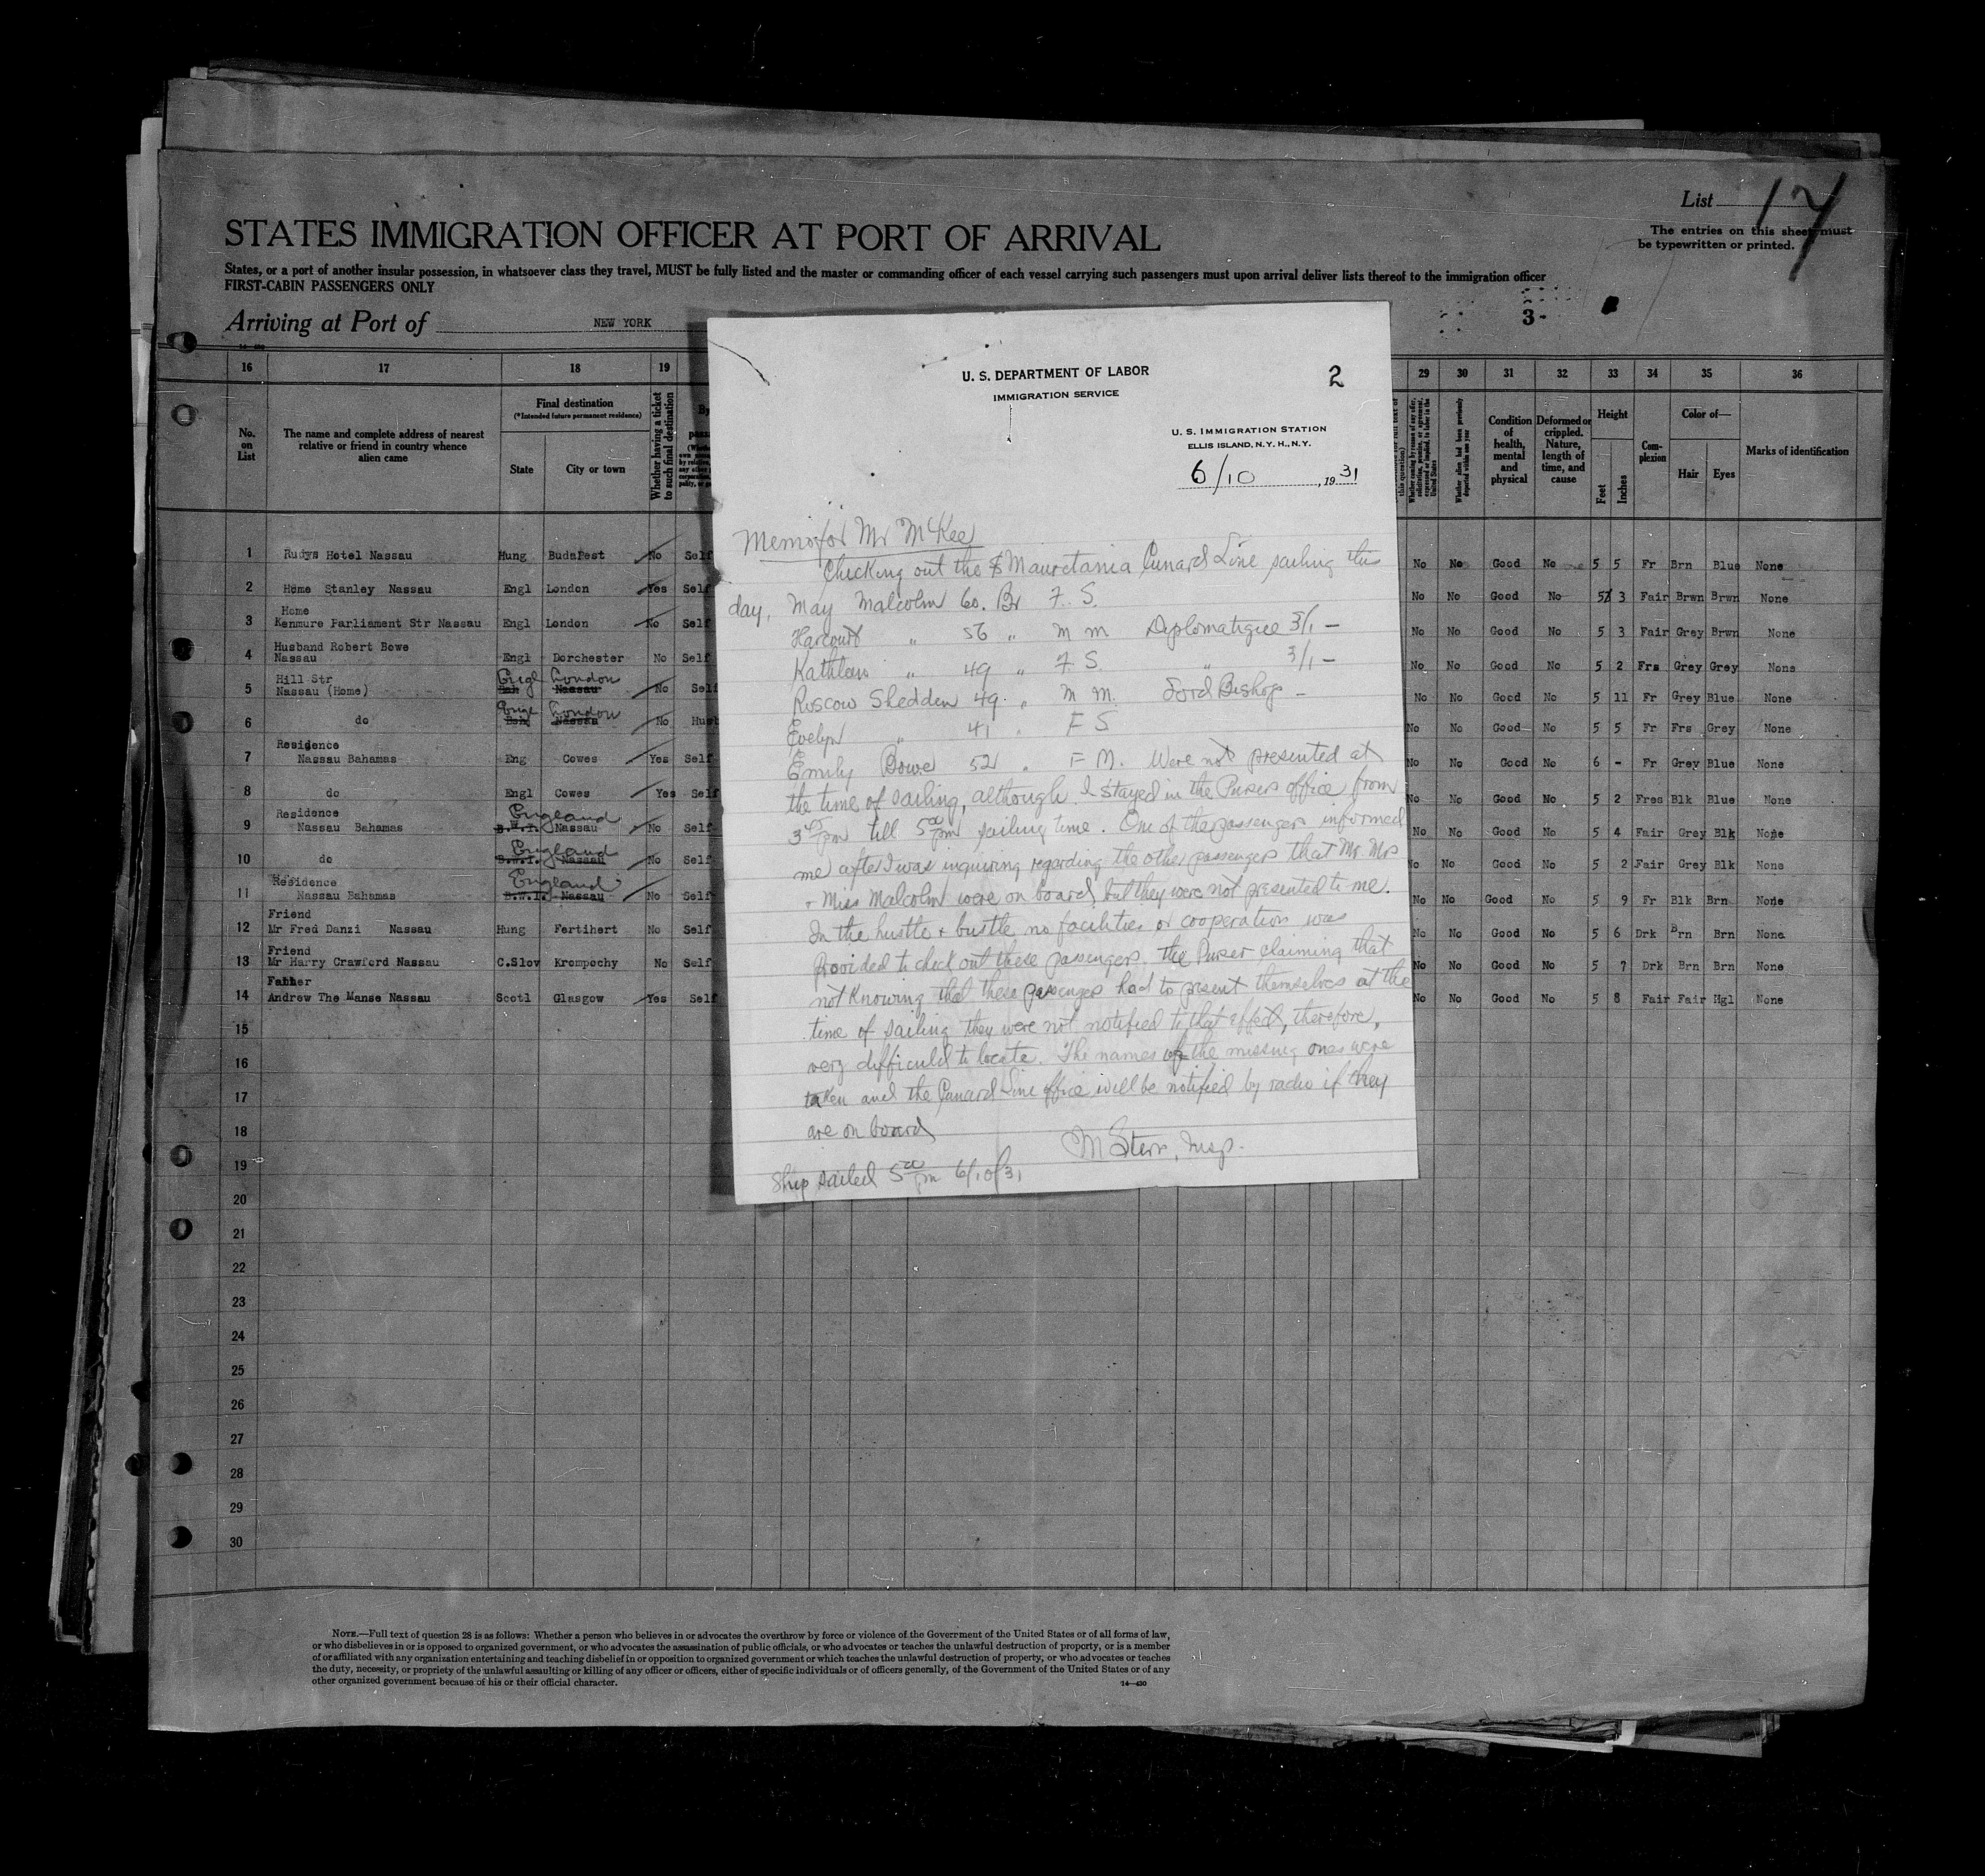 List 17
The entries on this sheet must
be typewritten or printed.
STATES IMMIGRATION OFFICER AT PORT OF ARRIVAL
States, or a port of another insular possession, in whatsoever class they travel, MUST be fully listed and the master or commanding officer of each vessel carrying such passengers must upon arrival deliver lists thereof to the immigration officer
FIRST-CABIN PASSENGERS ONLY
Arriving at Port of NEW YORK
3-
16 17 18 19
No. on List
The name and complete address of nearest relative or friend in country whence alien came
Final destination
(*Intended future permanent residence)
State City or town
Whether having a ticket to such final destination
29 30 31 32 33 34 35 36
Whether alien had been previously deported within one year
Condition of health, mental and physical
Deformed or crippled. Nature, length of time, and cause
Height
Feet Inches
Complexion
Color of—
Hair Eyes
Marks of identification
1 Rudys Hotel Nassau Hung Budapest No Self No No Good No 5 5 Fr Brn Blue None
2 Home Stanley Nassau Engl London Yes Self No No Good No 5 3 Fair Brwn Brwn None
3 Home Kenmure Parliament Str Nassau Engl London No Self No No Good No 5 3 Fair Grey Brwn None
4 Husband Robert Bowe Nassau Engl Dorchester No Self No No Good No 5 2 Frs Grey Grey None
5 Hill Str Nassau (Home) Bah Nassau Engl London No Self No No Good No 5 11 Fr Grey Blue None
6 do Bah Nassau Engl London No No No Good No 5 5 Fr Frs Grey None
7 Residence Nassau Bahamas Eng Cowes Yes Self No No Good No 6 - Fr Grey Blue None
8 do Engl Cowes Yes Self No No Good No 5 2 Fres Blk Blue None
9 Residence Nassau Bahamas B.W.I. Nassau England No Self No No Good No 5 4 Fair Grey Blk None
10 do B.W.I. Nassau England No Self No No Good No 5 2 Fair Grey Blk None
11 Residence Nassau Bahamas B.W.I. Nassau England No Self No No Good No 5 9 Fr Blk Brn None
12 Friend Mr Fred Danzi Nassau Hung Fertihert No Self No No Good No 5 6 Drk Brn Brn None
13 Friend Mr Harry Crawford Nassau C.Slov Krompochy No Self No No Good No 5 7 Drk Brn Brn None
14 Father Andrew The Manse Nassau Scotl Glasgow Yes Self No No Good No 5 8 Fair Fair Hgl None
15
16
17
18
19
20
21
22
23
24
25
26
27
28
29
30
U. S. DEPARTMENT OF LABOR
IMMIGRATION SERVICE
2
U. S. IMMIGRATION STATION
ELLIS ISLAND, N.Y. H., N.Y.
6/10, 1931
Memo for Mr McKee
Checking out the SS Mauretania Cunard Line sailing this
day, May Malcolm 60. Br F. S.
Harcourt " 56 " M M Diplomatique 3/1 -
Kathleen " 49 " F S " 3/1 -
Roscow Shedden 49 " M M. Lord Bishop -
Evelyn " 41 " F S
Emily Bowe 52 " F M. Were not presented at
the time of sailing, although I stayed in the Pursers office from
3 45 pm till 5 00 pm sailing time. One of the passengers informed
me after I was inquiring regarding the other passengers that Mr. Mrs
+ Miss Malcolm were on board, but they were not presented to me.
In the hustle + bustle no facilities or cooperation was
provided to check out these passengers. The Purser claiming that
not knowing that these passengers had to present themselves at the
time of sailing they were not notified to that effect, therefore,
very difficuld to locate. The names of the missing ones were
taken and the Cunard Line office will be notified by radio if they
are on board
M Stern, Insp.
Ship sailed 5 00 pm 6/10/31
NOTE.—Full text of question 28 is as follows: Whether a person who believes in or advocates the overthrow by force or violence of the Government of the United States or of all forms of law,
or who disbelieves in or is opposed to organized government, or who advocates the assassination of public officials, or who advocates or teaches the unlawful destruction of property, or is a member
of or affiliated with any organization entertaining and teaching disbelief in or opposition to organized government or which teaches the unlawful destruction of property, or who advocates or teaches
the duty, necessity, or propriety of the unlawful assaulting or killing of any officer or officers, either of specific individuals or of officers generally, of the Government of the United States or of any
other organized government because of his or their official character.
14—430